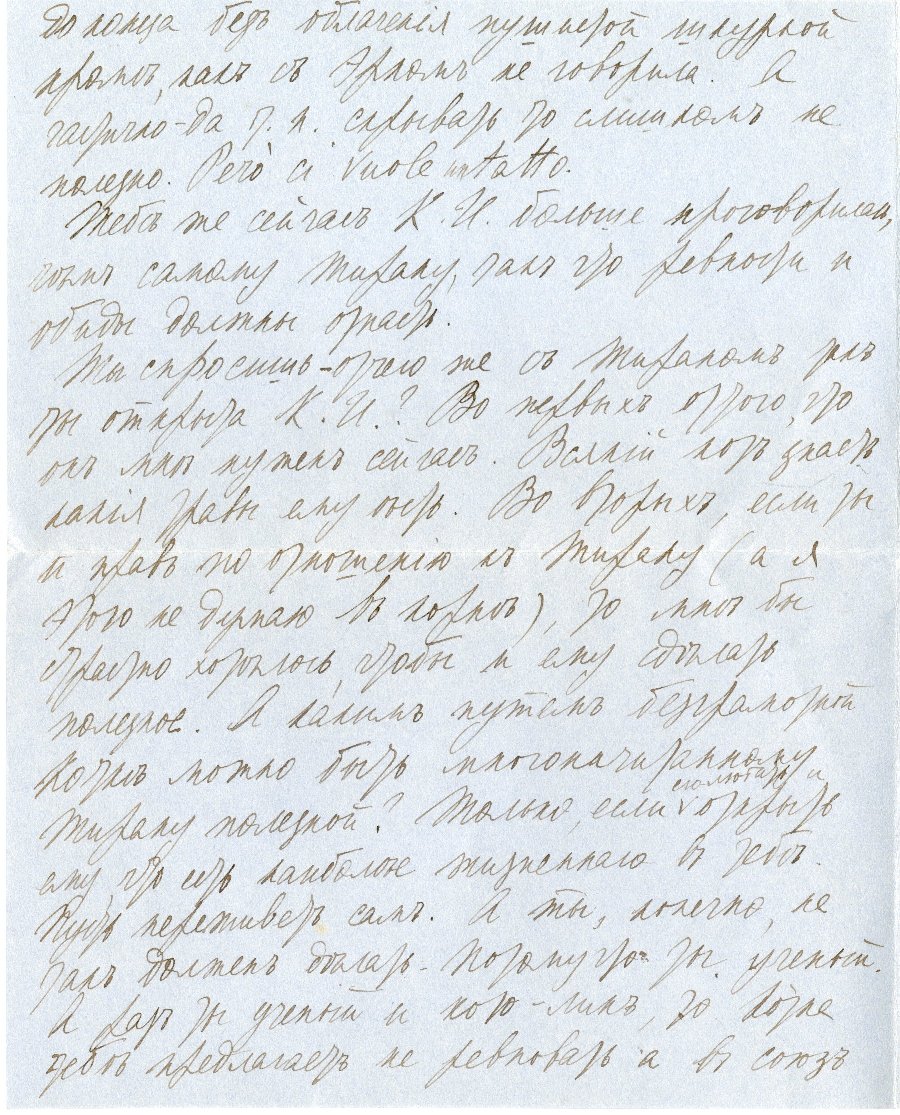 до конца безъ облаченія пушистой шкуркой
прямо, какъ съ Эрномъ не говорила. А
частично-да т. к. скрывать то слишкомъ не
полезно. Però ci vuole un tatto.
Тебѣ же сейчасъ К. И. больше проговорилась,
чѣмъ самому Тирану, такъ что ревности и
обиды должны отпасть.
Ты спросишь-отчего же съ Тираномъ такъ
ты открыта К. И.? Во первыхъ оттого, что
онъ мнѣ нуженъ сейчасъ. Всякій котъ знаетъ
какія травы ему ѣсть. Во вторыхъ, если ты
и правъ по отношенію къ Тирану (а я
этого не думаю въ корнѣ), то мнѣ бы
страстно хотѣлось, чтобы и ему сдѣлать
полезное. А какимъ путемъ безграмотной
Кошкѣ можно быть многоначитанному
Тирану полезной? Только, если открыть
ему, что есть наиболѣе жизненнаго въ тебѣ.
Пусть переживетъ самъ. А ты, конечно, не
такъ долженъ дѣлать-потому что ты ученый.
А разъ ты ученый и кото-ликъ, то
тебѣ предлагаетъ не ревновать а въ союзъ